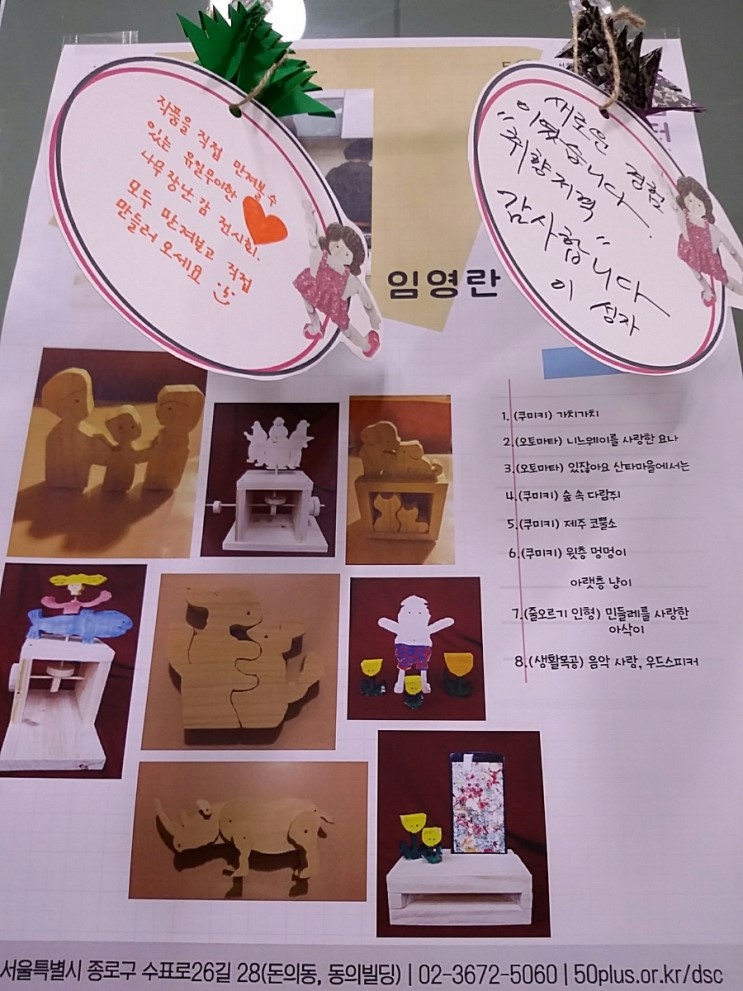 작품을 직접 만져볼 수
있는 유일무이한
나무 장난감 전시회.
모두 만져보고 직접
만들러 오세요
새로운 경험
이었습니다
"취향저격"
감사합니다
이 성자
터
임영란
1. (쿠미키) 가치가치
2.(오토마타) 니느웨이를 사랑한 요나
3.(오토마타) 있잖아요 산타마을에서는
4.(쿠미키) 숲 속 다람쥐
5.(쿠미키) 제주 코뿔소
6.(쿠미키) 윗층 멍멍이
아랫층 냥이
7.(줄오르기 인형) 민들레를 사랑한
아삭이
8.(생활목공) 음악 사랑, 우드스피커
서울특별시 종로구 수표로26길 28(돈의동, 동의빌딩) | 02-3672-5060 | 50plus.or.kr/dsc